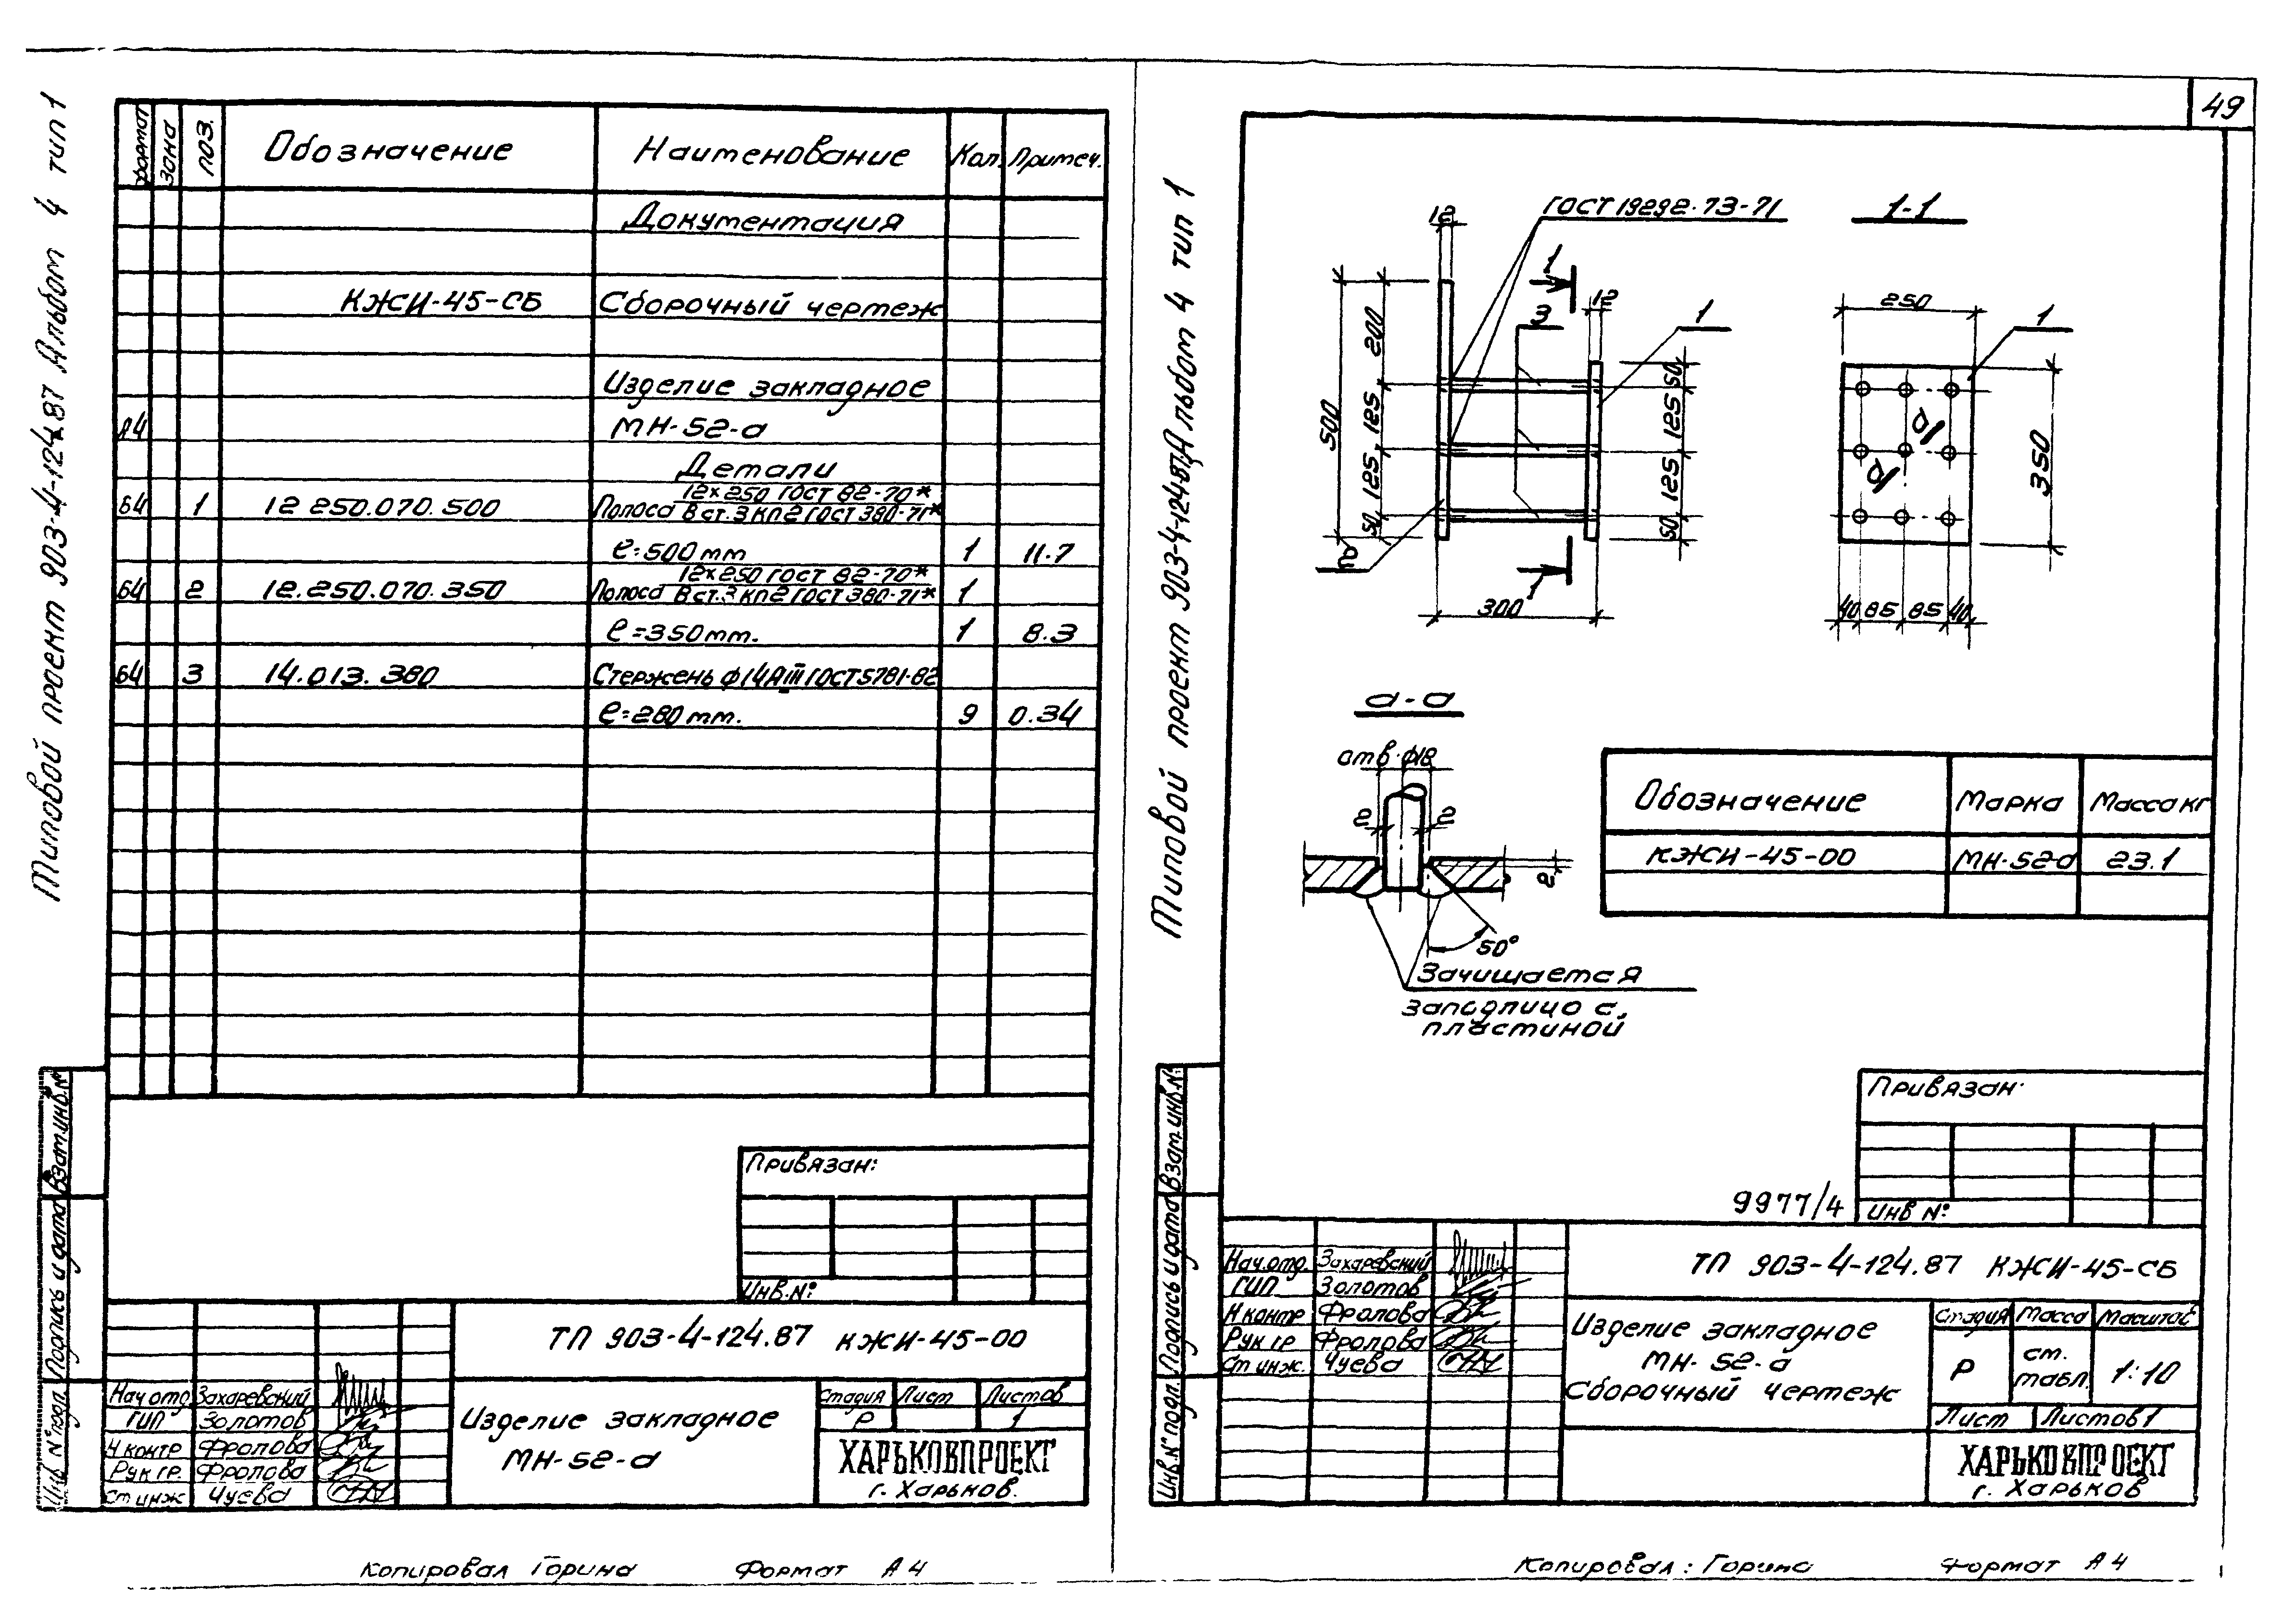 Типовой проект 903-4-124.87 Альбом 4 тип 1
формат зона поз. Обозначение Наименование Кол. Примеч.
Документация
КЖСИ-45-СБ Сборочный чертеж
Изделие закладное
А4 МН-52-а
Детали
12×250 ГОСТ 82-70*
Б4 1 12 250.070.500 Полоса В ст.3 КП 2 ГОСТ 380-71*
ℓ=500мм 1 11.7
12×250 ГОСТ 82-70*
Б4 2 12.250.070.350 Полоса В ст.3 КП 2 ГОСТ 380-71* 1
ℓ=350мм. 1 8.3
Б4 3 14.013.380 Стержень ф14АIII ГОСТ 5781-82
ℓ=280мм. 9 0.34
Привязан:
Инв.№:
Инв. № подл. Подпись и дата Взам.инв.№
ТП 903-4-124.87 КЖИ-45-00
Нач.отд Захаревский
ГИП Золотов
Н контр Фролова
Рук гр. Фролова
Ст инж Чуева
Изделие закладное
МН-52-а
Стадия Лист Листов
Р 1
ХАРЬКОВПРОЕКТ
г. Харьков.
Копировал Горина Формат А4
49
Типовой проект 903-4-124.87 Альбом 4 тип 1
ГОСТ 19292-73-71
1-1
12
1
3
12
1
500
200
125
125
50
50
125
125
50
2
1
300
250
1
d
d
350
40 85 85 40
а-а
отв. ф18
2 2
2
50°
Зачищается
заподлицо с
пластиной
Обозначение Марка Масса кг
КЖСИ-45-00 МН-52-а 23.1
Привязан:
Инв №:
9977/4
Инв.№ подл. Подпись и дата Взам.инв.№:
ТП 903-4-124.87 КЖСИ-45-СБ
Нач.отд. Захаревский
ГИП Золотов
Н контр Фролова
Рук гр Фролова
Ст инж. Чуева
Изделие закладное
МН-52-а
Сборочный чертеж
Стадия Масса Масштаб
Р ст. табл. 1:10
Лист Листов 1
ХАРЬКОВПРОЕКТ
г. Харьков
Копировал: Горина Формат А4